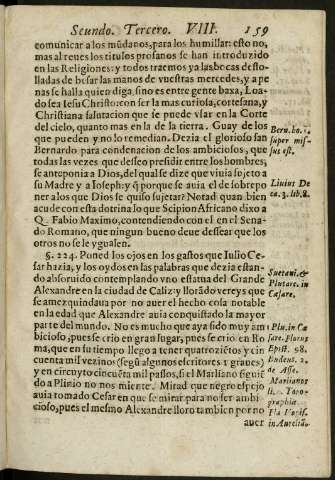 Scundo. Tercero. VIII. 159
comunicar a los mũdanos, para los humillar: esto no,
mas al reues los titulos profanos se han introduzido
en las Religiones: y todos traemos ya las bocas desto-
lladas de besar las manos de vuestras mercedes, y a pe
nas se halla quien diga, sino es entre gente baxa, Loa-
do sea Iesu Christo: con ser la mas curiosa, cortesana, y
Christiana salutacion que se puede vsar en la Corte
del cielo, quanto mas en la de la tierra. Guay de los
que pueden y no lo remedian. Dezia el glorioso san
Bernardo para condenacion de los ambiciosos, que
todas las vezes que desseo presidir entre los hombres,
se anteponia a Dios, del qual se dize que viuia sojeto a
su Madre y a Ioseph: y q̃ porque se auia el de sobrepo
ner a los que Dios se quiso sujetar? Notad quan bien
acude con esta dotrina lo que Scipion Africano dixo a
Q. Fabio Maximo, contendiendo con el en el Sena-
do Romano, que ningun bueno deue dessear que los
otros no se le ygualen.
§. 224. Poned los ojos en los gastos que Iulio Ce-
sar hazia, y los oydos en las palabras que dezia estan-
do absoruido contemplando vna estatua del Grande
Alexandre en la ciudad de Caliz y llorãdo vereys que
se amezquindaua por no auer el hecho cosa notable
en la edad que Alexandre auia conquistado la mayor
parte del mundo. No es mucho que aya sido muy am
bicioso, pues se crio en gran lugar, pues se crio en Ro
ma, que en su tiempo llego a tener quatroziẽtos y cin
cuenta mil vezinos (segũ algunos escritores graues)
y en circuyto cincuẽta mil passos, si el Marliano siguiẽ
do a Plinio no nos miente. Mirad que negro espejo
auia tomado Cesar en que se mirar para no ser ambi-
cioso, pues el mesmo Alexandre lloro tambien por no
auer
Bern. ho. 1.
super mis-
sus est.
Liuius De
ca. 3. lib. 8.
Suetoni. &
Plutarc. in
Cæsare.
Plu. in Cæ
sare. Florus
Epist. 98.
de Asse.
Marlianus
Topo-
graphiæ
in Aurelia.